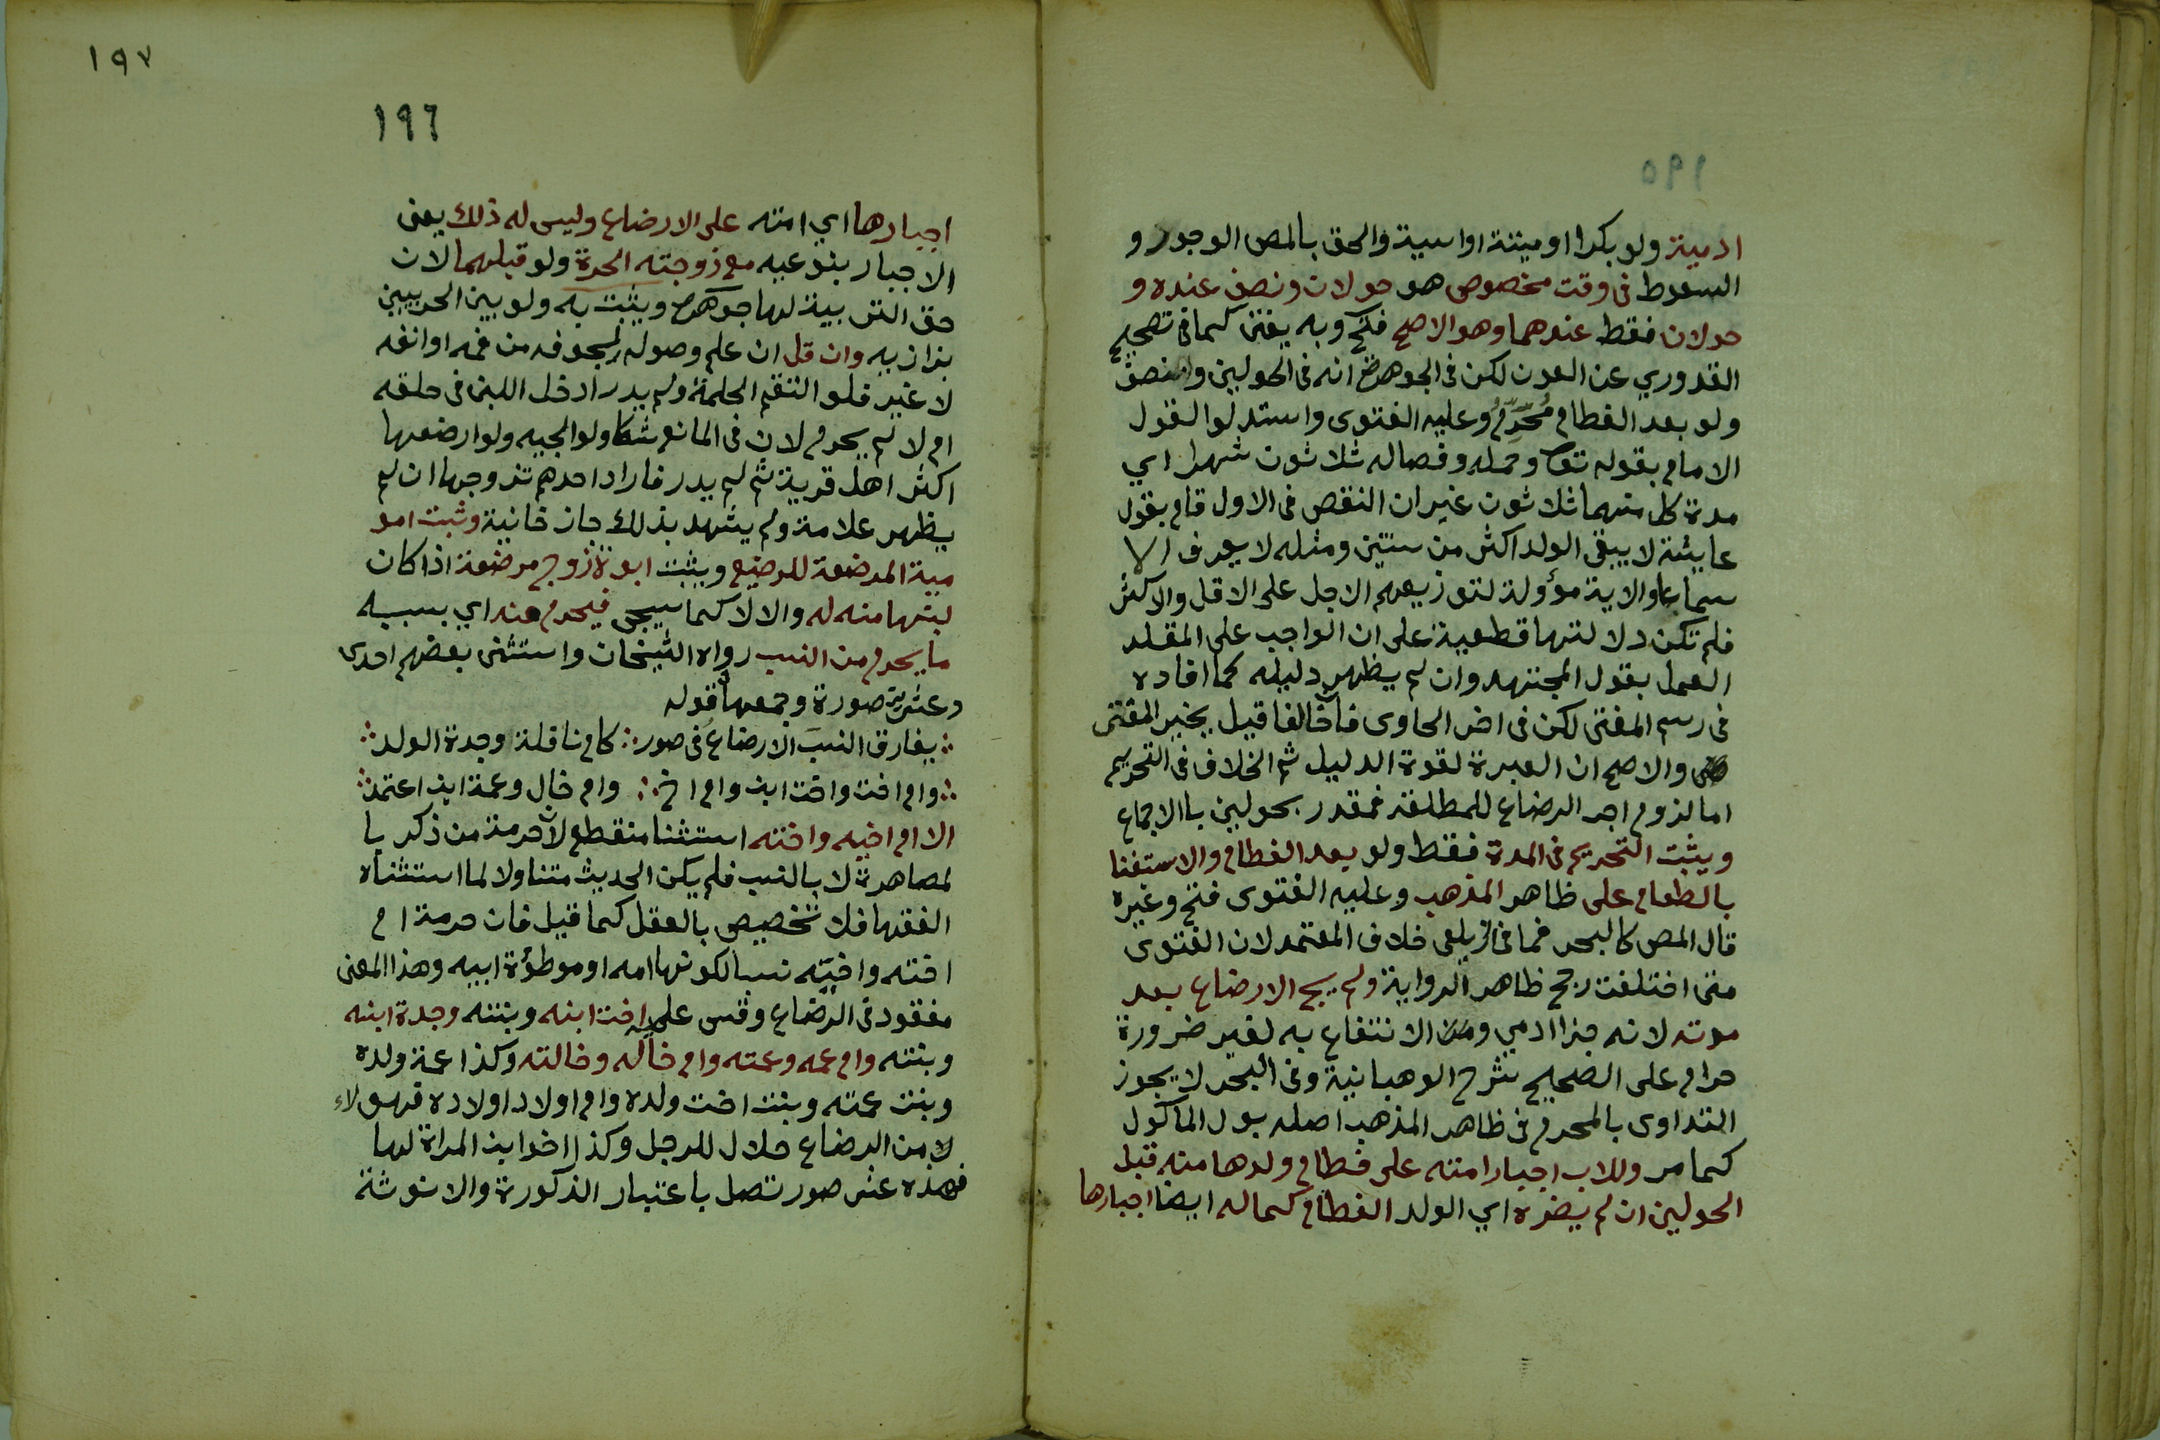 ١٩٥
ادمية ولو بكرا او ميتة او ايسية والحق بالمص الوجور و
السعوط فى وقت مخصوص هو حولان ونصف عنده و
حولان فقط عندهما وهو الاصح فتح وبه يفتى كما فى تصحيح
القدوري عن العون لكن فى الجوهرة انه فى الحولين ونصف
ولو بعد الفطام مُحَرِّم وعليه الفتوى واستدلوا لقول
الامام بقوله تعالى وحمله وفصاله ثلاثون شهرا اي
مدة كل منهما ثلاثون غير ان النقص فى الاول قام بقول
عايشة لا يبقى الولد اكثر من سنتين ومثله لا يعرف الا
سماعا والاية مؤولة لتوزيعهم الاجل على الاقل والاكثر
فلم تكن دلالتها قطعية على ان الواجب على المقلد
العمل بقول المجتهد وان لم يظهر دليله كما افاده
فى رسم المفتى لكن فى اخر الحاوى فان خالفا قيل يخير المفتى
والاصح ان العبرة لقوة الدليل ثم الخلاف فى التحريم
اما لزوم اجر الرضاع للمطلقة فمقدر بحولين باالاجماع
ويثبت التحريم فى المدة فقط ولو بعد الفطام والاستغنا
بالطعام على ظاهر المذهب وعليه الفتوى فتح وغيره
قال المص كالبحر فما فى الزيلعى خلاف المعتمد لان الفتوى
متى اختلفت رجح ظاهر الرواية ولم يبح الارضاع بعد
موته لانه جزا ادمي والانتفاع به لغير ضرورة
حرام على الصحيح شرح الوهبانية وفى البحر لا يجوز
التداوى بالمحرم فى ظاهر المذهب اصله بول الماكول
كما مر وللاب اجبار امته على فطام ولدها منه قبل
الحولين ان لم يضره اي الولد الفطام كما له ايضا اجبارها
١٩٧
١٩٦
اجبارها اي امته على الارضاع وليس له ذلك يعنى
الاجبار بنوعيه مع زوجته الحرة ولو قبلهما لان
حق التربية لها جوهرة ويثبت به ولو بين الحربيين
بزازيه وان قل ان علم وصوله لجوفه من فمه او انفه
لا غير فلو التقم الحلمة ولم يدر ادخل اللبن فى حلقه
ام لا لم يحرم لان فى المانع شكا ولوالجيه ولو ارضعها
اكثر اهل قرية ثم لم يدر فاراد احدهم تزوجها ان لم
يظهر علامة ولم يشهد بذلك جاز خانية وثبت امو
مية المرضعة للرضيع ويثبت ابوة زوج مرضعة اذا كان
لبنها منه له والا لا كما سيجى فيحرم منه اي بسببه
ما يحرم من النسب رواه الشيخان واستثنى بعضهم احدى
وعشرين صورة وجمعها قوله
يفارق النسبَ الارضاعُ فى صور كام نافلة وجدة الولد
وام اخت واخت ابن وام اخ وام خال وعمة ابن اعتمد
الا ام اخيه واخته استثنا منقطع لان حرمة من ذكر با
لمصاهرة لا بالنسب فلم يكن الحديث متناولا لما استثناه
الفقها فلا تخصيص بالعقل كما قيل فان حرمة ام
اخته واخيه نسبا لكونها امه او موطؤة ابيه وهذا المعنى
مفقود فى الرضاع وقس عليه اخت ابنه وبنته وجدة ابنه
وبنته وام عمه وعمته وام خاله وخالته وكذا عمة ولده
وبنت عمته وبنت اخت ولده وام اولاد اولاده فهولاء
لا من الرضاع حلال للرجل وكذا اخو ابن المراة لها
فهذه عشر صور تصل باعتبار الذكورة والانوثة